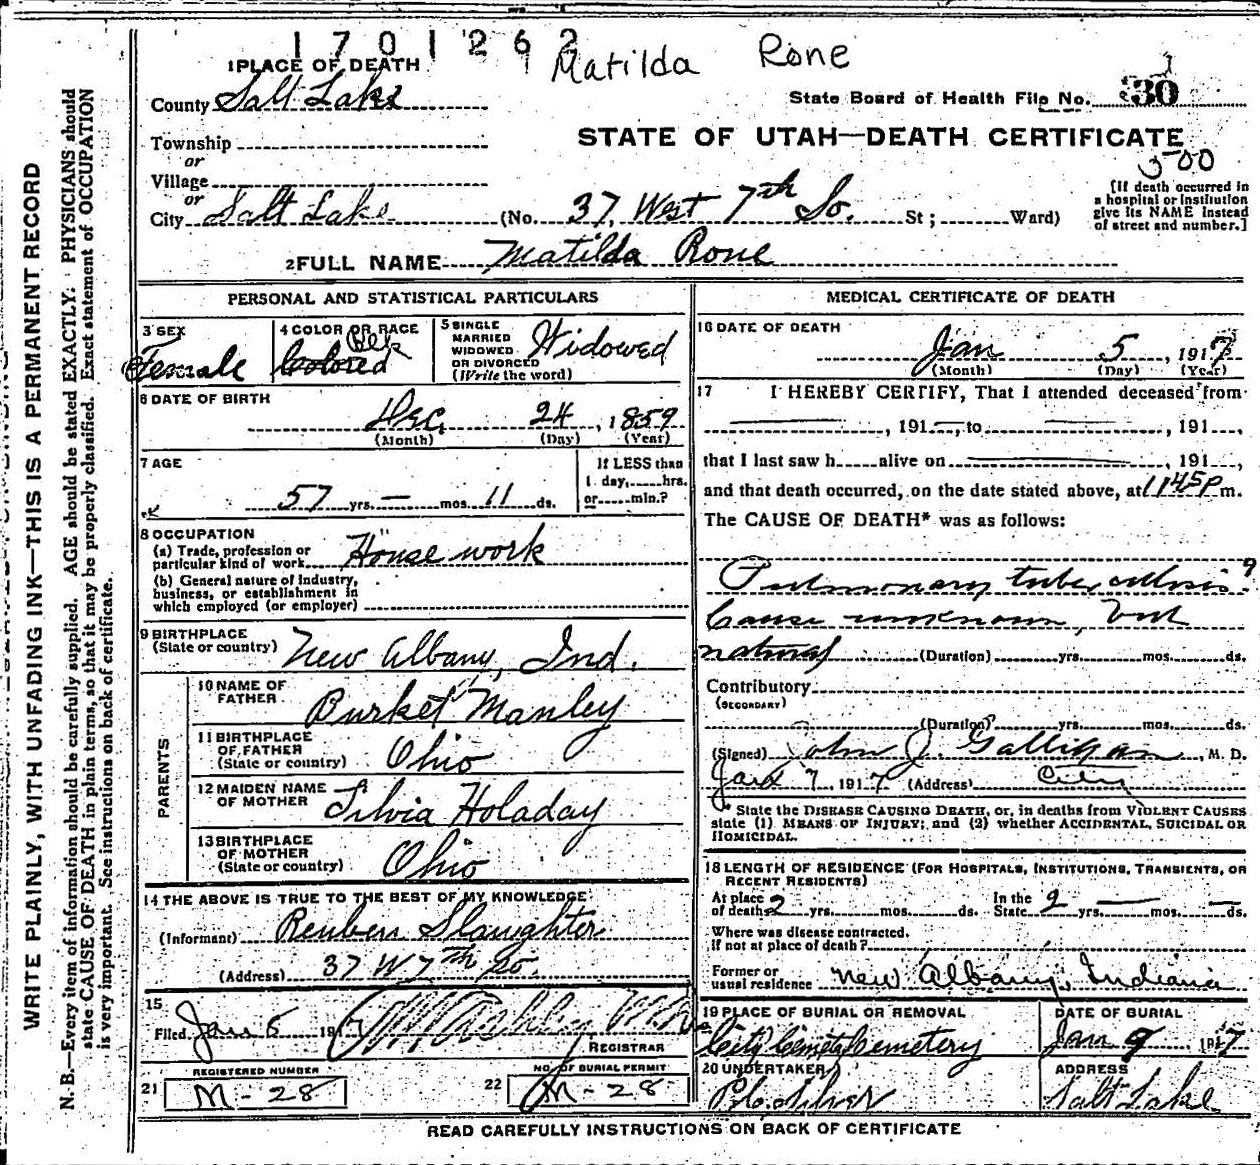 1701262
Matilda Rone
1 PLACE OF DEATH
County Salt Lake
State Board of Health File No. 30
Township
or
Village
or
City Salt Lake
STATE OF UTAH—DEATH CERTIFICATE
500
(No. 37 West 7th So. St; Ward)
[If death occurred in
a hospital or institution
give its NAME instead
of street and number.]
2 FULL NAME Matilda Rone
PERSONAL AND STATISTICAL PARTICULARS
3 SEX
Female
4 COLOR OR RACE
Blk
Colored
5 SINGLE
MARRIED
WIDOWED
OR DIVORCED
(Write the word)
Widowed
6 DATE OF BIRTH
Dec. 24, 1859
(Month) (Day) (Year)
7 AGE
57 yrs. — mos. 11 ds.
If LESS than
1 day, hrs.
or min.?
8 OCCUPATION
(a) Trade, profession or
particular kind of work House work
(b) General nature of industry,
business, or establishment in
which employed (or employer)
9 BIRTHPLACE
(State or country) New Albany, Ind.
PARENTS
10 NAME OF
FATHER Burket Manley
11 BIRTHPLACE
OF FATHER
(State or country) Ohio
12 MAIDEN NAME
OF MOTHER Silvia Holaday
13 BIRTHPLACE
OF MOTHER
(State or country) Ohio
14 THE ABOVE IS TRUE TO THE BEST OF MY KNOWLEDGE
(Informant) Reuben Slaughter
(Address) 37 W 7th So.
15
Filed Jan 5 1917
REGISTRAR
REGISTERED NUMBER
21 M-28
NO. OF BURIAL PERMIT
22 M-28
MEDICAL CERTIFICATE OF DEATH
16 DATE OF DEATH
Jan 5, 1917
(Month) (Day) (Year)
17 I HEREBY CERTIFY, That I attended deceased from
——, 191—, to ——, 191
that I last saw h alive on ——, 191
and that death occurred, on the date stated above, at 1145P m.
The CAUSE OF DEATH* was as follows:
Pulmonary tuberculosis?
Cause unknown, but
natural (Duration) yrs. mos. ds.
Contributory
(SECONDARY)
(Duration) yrs. mos. ds.
(Signed) John J. Galligan, M. D.
Jan 7, 1917 (Address) City
* State the DISEASE CAUSING DEATH, or, in deaths from VIOLENT CAUSES
state (1) MEANS OF INJURY; and (2) whether ACCIDENTAL, SUICIDAL OR
HOMICIDAL.
18 LENGTH OF RESIDENCE (FOR HOSPITALS, INSTITUTIONS, TRANSIENTS, OR
RECENT RESIDENTS)
At place
of death 2 yrs. mos. ds.
In the
State 2 — mos. — ds.
Where was disease contracted.
if not at place of death?
Former or
usual residence New Albany, Indiana
19 PLACE OF BURIAL OR REMOVAL
City Cemetery
DATE OF BURIAL
Jan 9 1917
20 UNDERTAKER
ADDRESS
Salt Lake
READ CAREFULLY INSTRUCTIONS ON BACK OF CERTIFICATE
WRITE PLAINLY, WITH UNFADING INK—THIS IS A PERMANENT RECORD
N. B.—Every item of information should be carefully supplied. AGE should be stated EXACTLY. PHYSICIANS should
state CAUSE OF DEATH in plain terms, so that it may be properly classified. Exact statement of OCCUPATION
is very important. See instructions on back of certificate.